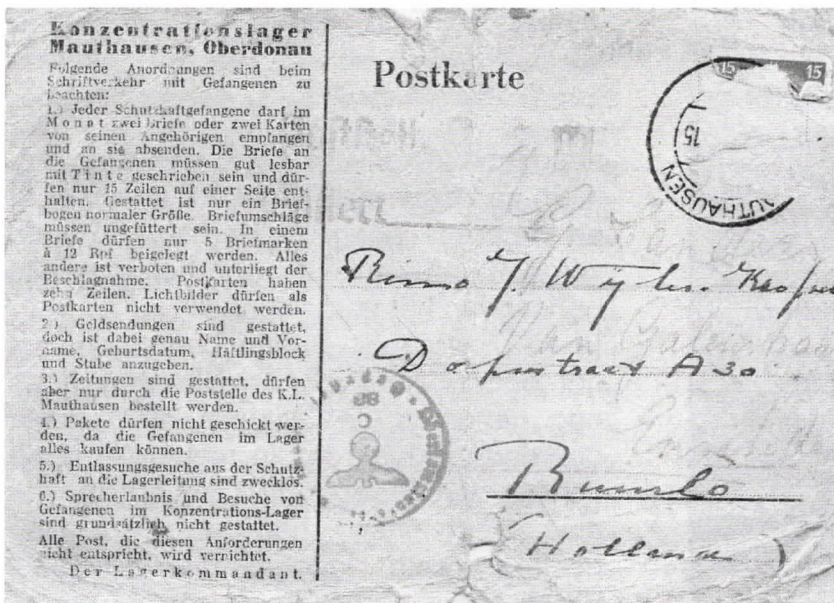 Konzentrationslager
Mauthausen, Oberdonau
Folgende Anordnungen sind beim
Schriftverkehr mit Gefangenen zu
beachten:
1.) Jeder Schutzhaftgefangene darf im
Monat zwei Briefe oder zwei Karten
von seinen Angehörigen empfangen
und an sie absenden. Die Briefe an
die Gefangenen müssen gut lesbar
mit Tinte geschrieben sein und dür-
fen nur 15 Zeilen auf einer Seite ent-
halten. Gestattet ist nur ein Brief-
bogen normaler Größe. Briefumschläge
müssen ungefüttert sein. In einem
Briefe dürfen nur 5 Briefmarken
à 12 Rpf beigelegt werden. Alles
andere ist verboten und unterliegt der
Beschlagnahme. Postkarten haben
zehn Zeilen. Lichtbilder dürfen als
Postkarten nicht verwendet werden.
2.) Geldsendungen sind gestattet,
doch ist dabei genau Name und Vor-
name, Geburtsdatum, Häftlingsblock
und Stube anzugeben.
3.) Zeitungen sind gestattet, dürfen
aber nur durch die Poststelle des K.L.
Mauthausen bestellt werden.
4.) Pakete dürfen nicht geschickt wer-
den, da die Gefangenen im Lager
alles kaufen können.
5.) Entlassungsgesuche aus der Schutz-
haft an die Lagerleitung sind zwecklos.
6.) Sprecherlaubnis und Besuche von
Gefangenen im Konzentrations-Lager
sind grundsätzlich nicht gestattet.
Alle Post, die diesen Anforderungen
nicht entspricht, wird vernichtet.
Der Lagerkommandant.
Postkarte
15 15
15
AUTHAUSEN
Dopstraat A30
(Holland)